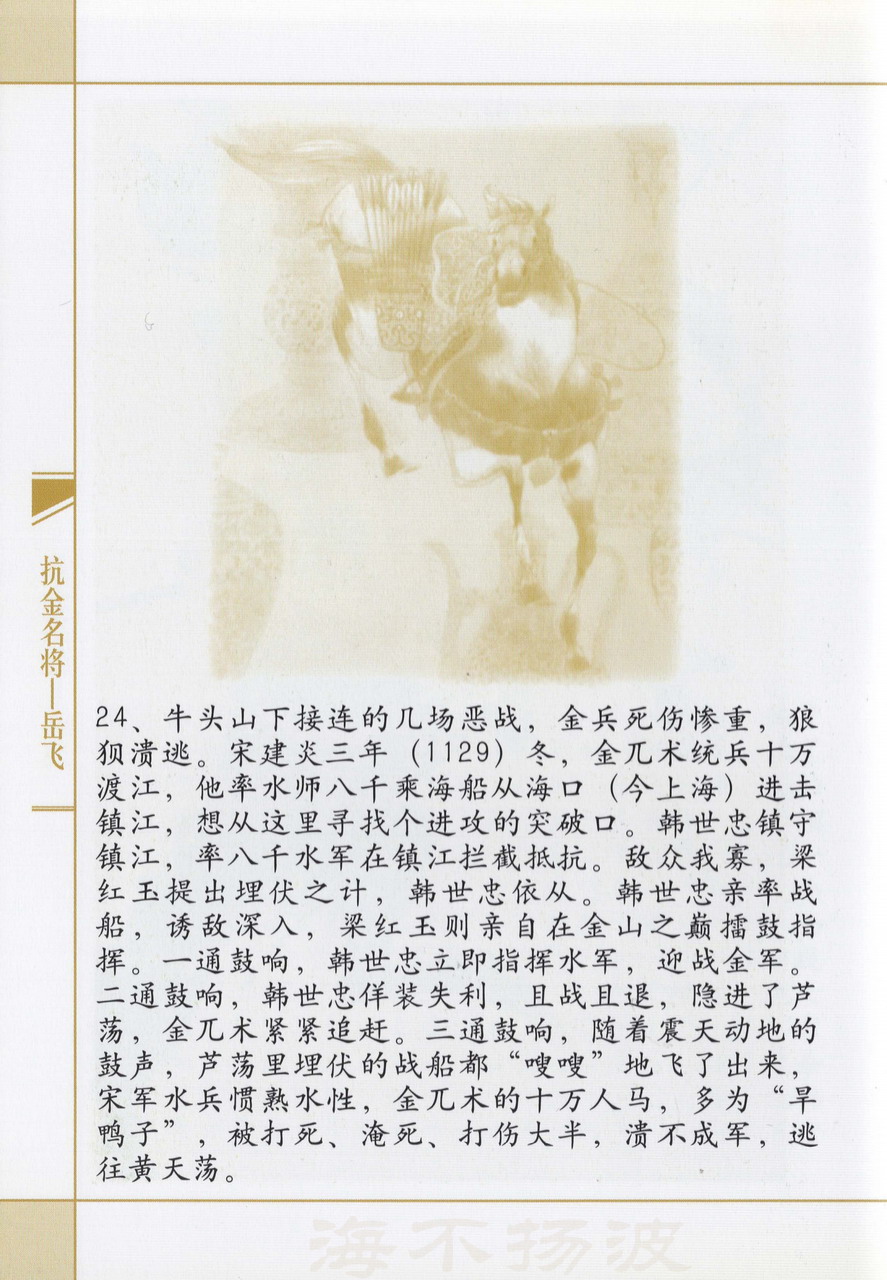 抗金名将—岳飞
24、牛头山下接连的几场恶战，金兵死伤惨重，狼
狈溃逃。宋建炎三年（1129）冬，金兀术统兵十万
渡江，他率水师八千乘海船从海口（今上海）进击
镇江，想从这里寻找个进攻的突破口。韩世忠镇守
镇江，率八千水军在镇江拦截抵抗。敌众我寡，梁
红玉提出埋伏之计，韩世忠依从。韩世忠亲率战
船，诱敌深入，梁红玉则亲自在金山之巅擂鼓指
挥。一通鼓响，韩世忠立即指挥水军，迎战金军。
二通鼓响，韩世忠佯装失利，且战且退，隐进了芦
荡，金兀术紧紧追赶。三通鼓响，随着震天动地的
鼓声，芦荡里埋伏的战船都“嗖嗖”地飞了出来，
宋军水兵惯熟水性，金兀术的十万人马，多为“旱
鸭子”，被打死、淹死、打伤大半，溃不成军，逃
往黄天荡。
海不扬波